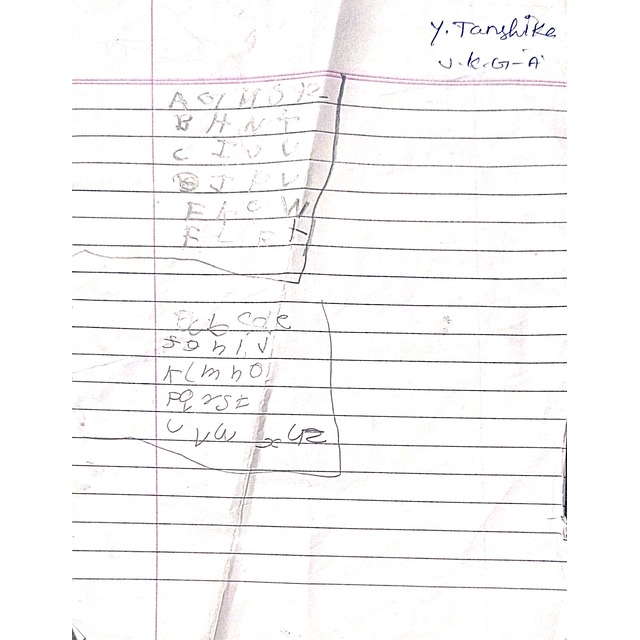 Y. Tanshike
U.K.G-A
A G M S
B H N T
C I U V
J P V
F C W
F L
c d e
f g h i j
k l m n o
p q r s t
u v w x y z